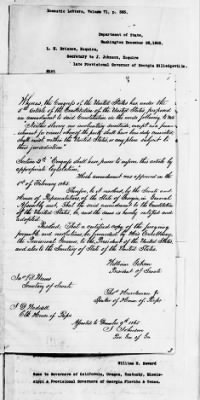 Domestic Letters, Volume 71, p. 585.
Department of State,
Washington December 28, 1865.
L. H. Briscoe, Esquire,
Secretary to J. Johnson, Esquire
Late Provisional Governor of Georgia Milledgeville.
Sir:
Whereas, the Congress of the United States has under the
5th article of the Constitution of the United States proposed
an amendment to said Constitution in the words following, to wit:
"Neither slavery nor involuntary servitude, except as a pun-
ishment for crime whereof the party shall have been duly convicted,
shall exist within the United States, or any place subject to
their jurisdiction."
Section 2d "Congress shall have power to enforce this article by
appropriate legislation."
Which amendment was approved on the
1st of February 1865.
Therefore, be it resolved, by the Senate and
House of Representatives, of the State of Georgia, in General
Assembly met, That the said amendment to the Constitution
of the United States, be, and the same is hereby ratified and
adopted.
Resolved, That a certified copy of the foregoing
preamble and resolution, be forwarded by His Excellency,
the Provisional Governor, to the President of the United States,
and also to the Secretary of State of the United States.
William Gibson
President of Senate
Secretary of Senate
Thos Hardeman Jr
Speaker of House of Reps
J. D. Waddell
Clk House of Reps
Approved December 9th 1865
J. Johnson
Pro. Gov. of Ga
William H. Seward
Same to Governors of California, Oregon, Kentucky, Missis-
sippi & Provisional Governors of Georgia Florida & Texas.